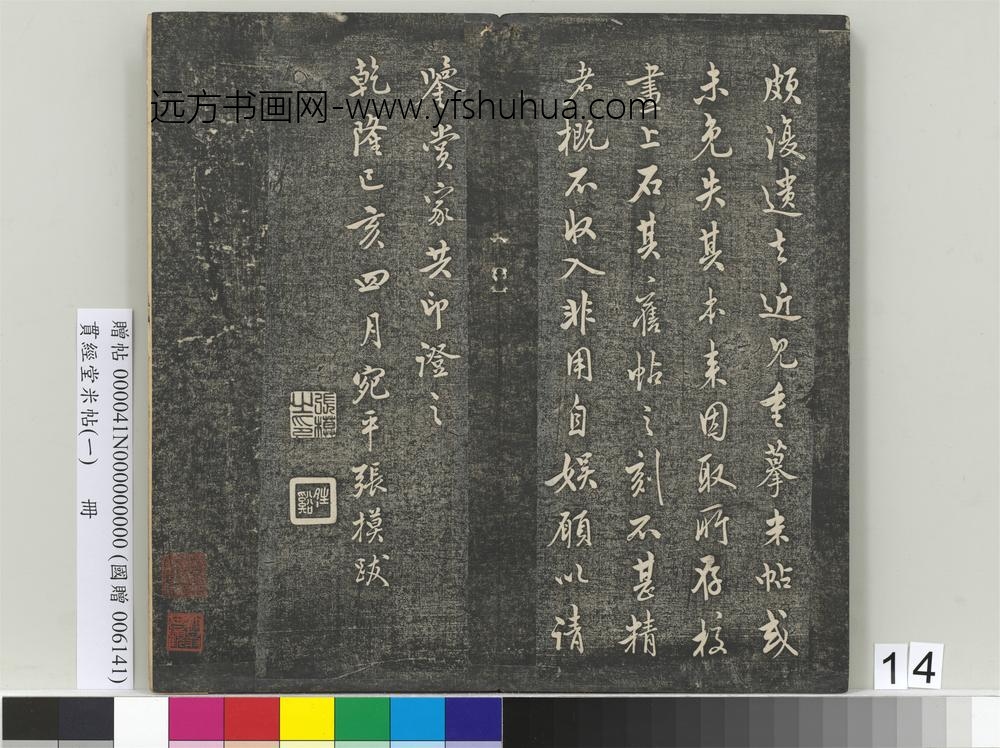 頗復遺去近見重摹米帖或
未免失其本来因取所存校
書上石其舊帖之刻不甚精
者概不收入非用自娱願以请
鑒赏家共印證之
乾隆己亥四月宛平張模跋
張模
之印
远方书画网-www.yfshuhua.com
贈帖 000041N000000000 (國贈 006141)
貫經堂米帖(一) 冊
14